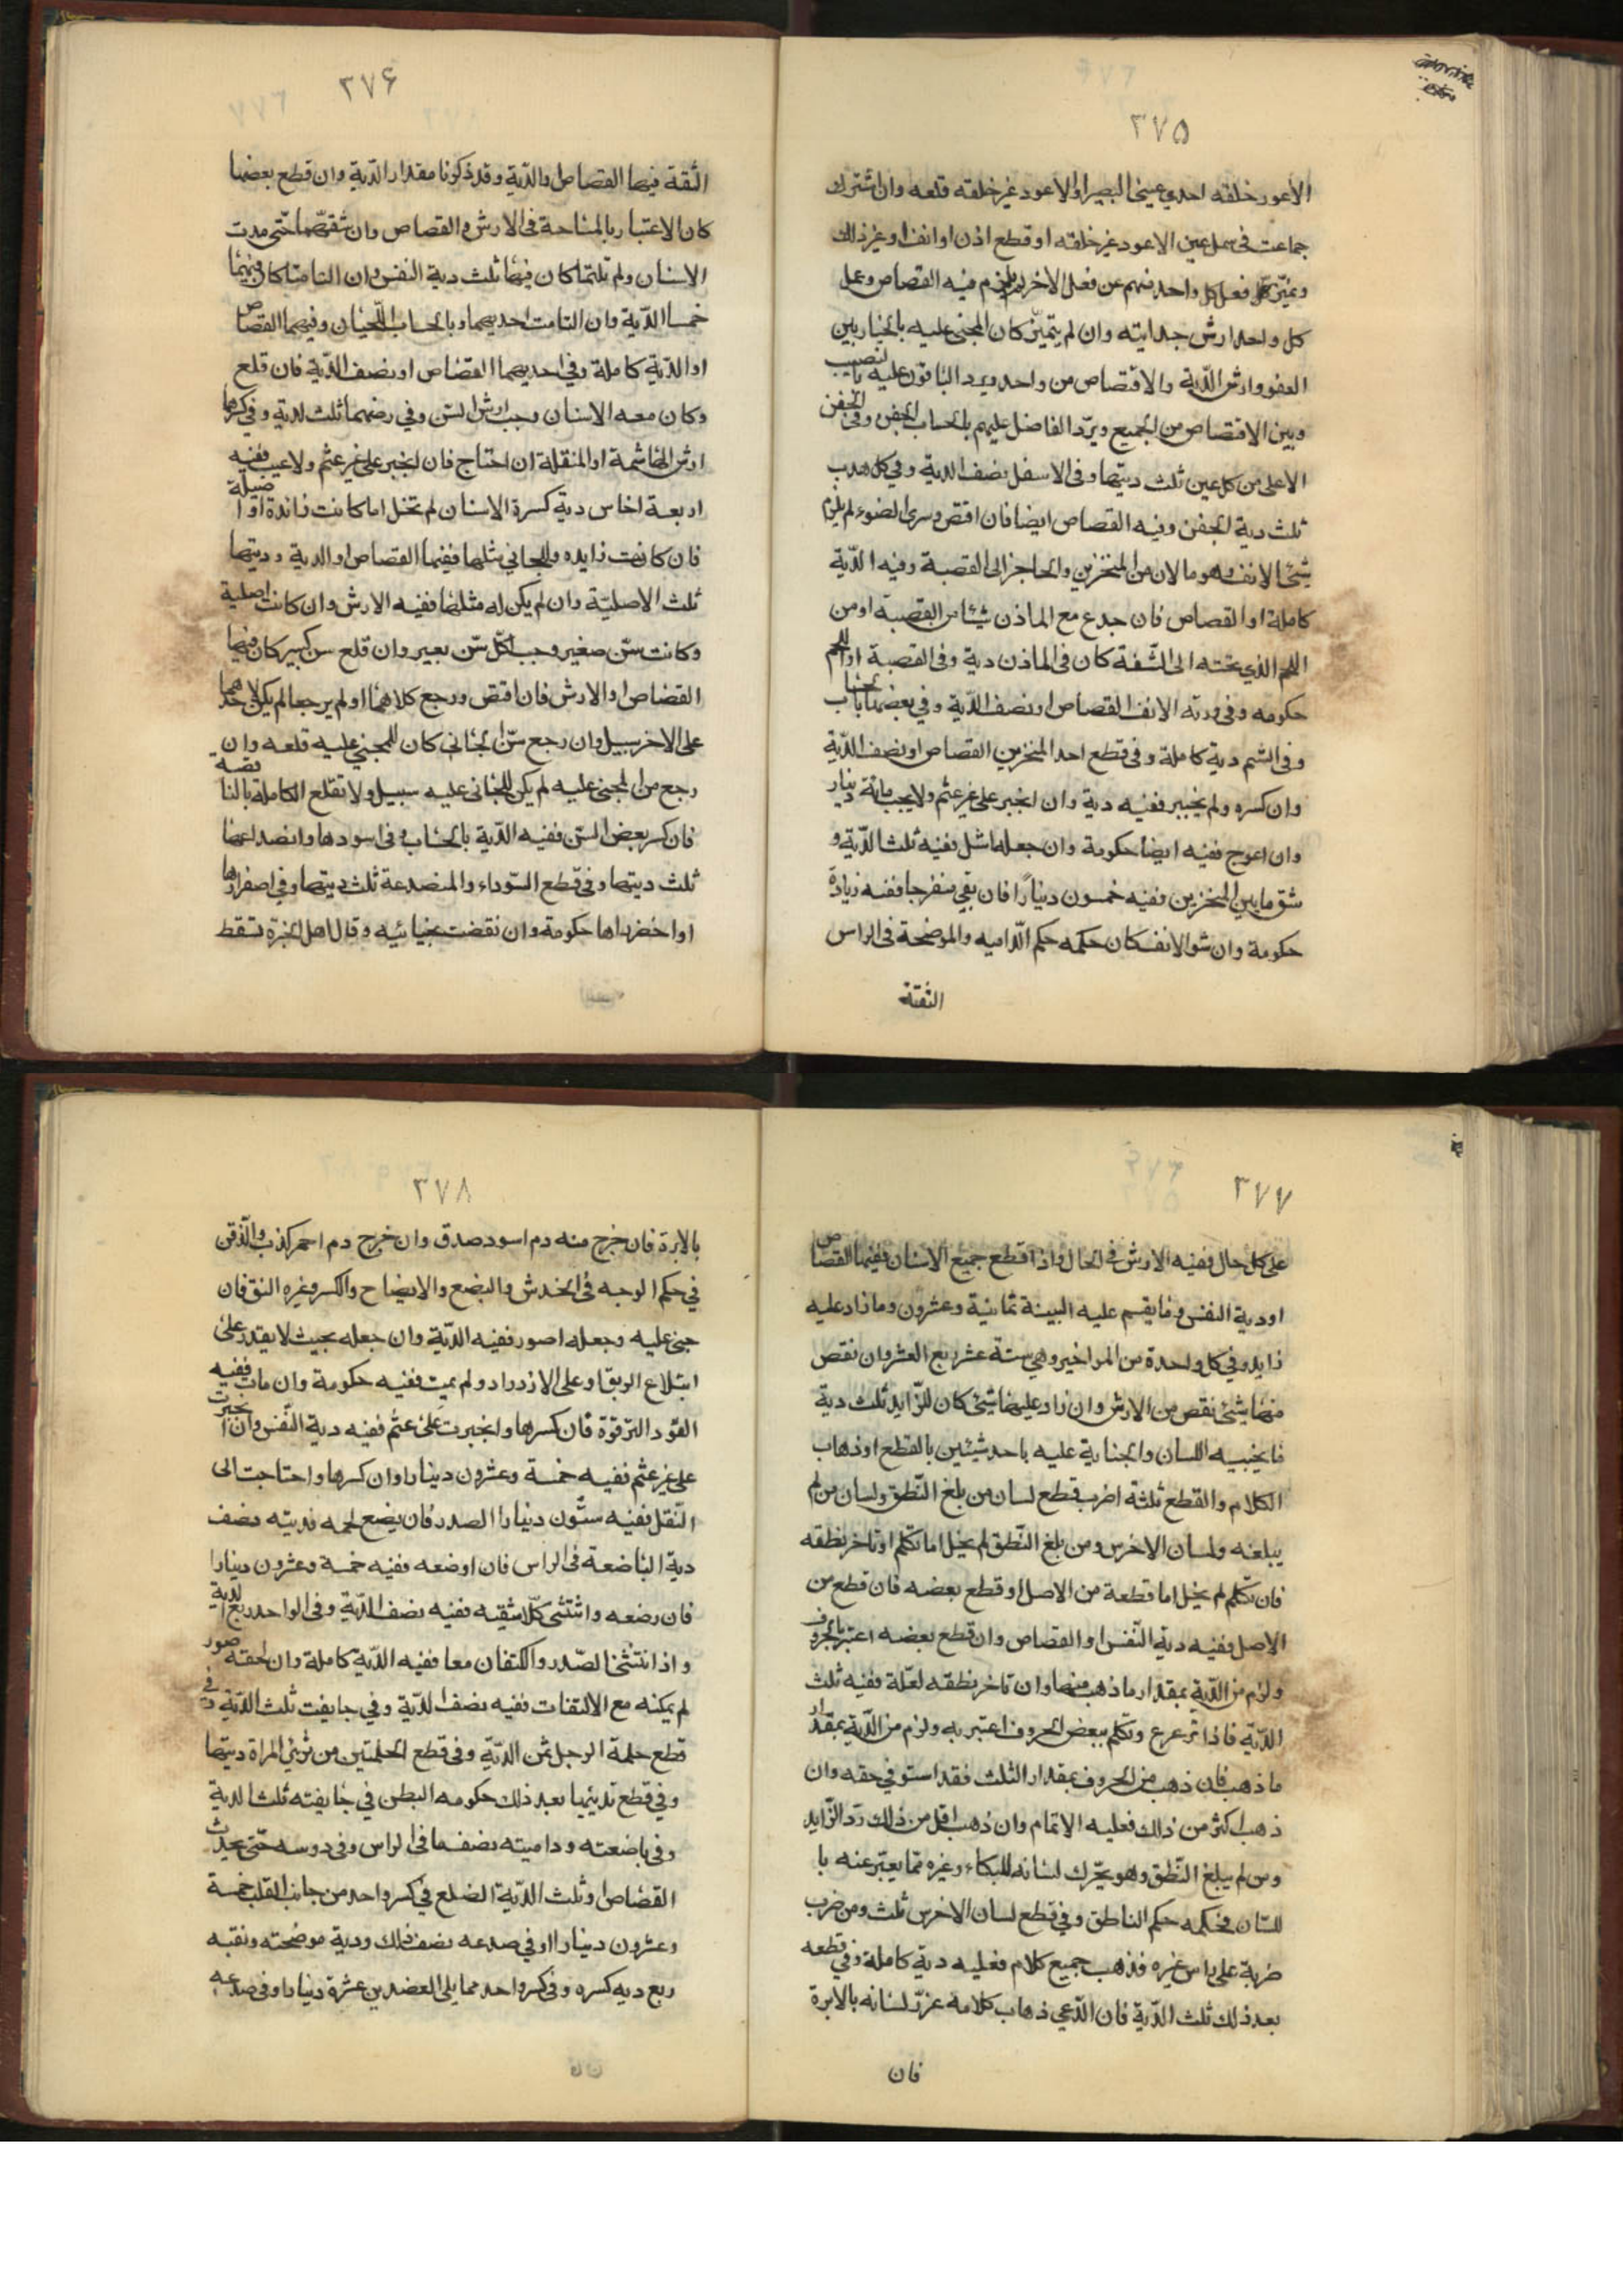 ٣٧٥
الاعور خلقه احدي عيني البصير او الاعور غير خلقه قلعه وان اشترك
جماعة في سمل عين الاعور غير خلقه او قطع اذن او انف او غير ذلك
وتميّز فعل كل واحد منهم عن فعل الاخر فيه القصاص وعمل
كل واحد ارش جنايته وان لم يتميّز كان المجني عليه بالخيار بين
العفو وارش الدّية والاقتصاص من واحد ويرد الباقون عليه بالنصيب
وبين الاقتصاص من الجميع ويردّ الفاضل عليهم بالحساب الجفن وفي الجفن
الاعلى من كل عين ثلث ديتها وفي الاسفل نصف الدية وفي كل هدب
ثلث دية الجفن وفيه القصاص ايضا فان اقتص وسرى الضوء لم يلزم
شئ الانف وهو ما لان من المنخزين والحاجز الى القصبة وفيه الدّية
كاملة او القصاص فان جدع مع الماذن شيئا من القصبة او من
اللحم الذي تحته الى الشّفة كان في الماذن دية وفي القصبة او اللحم
حكومه وفي ورته الانف القصاص او نصف الدّية وفي بعضها بالحساب
وفي الشم دية كاملة وفي قطع احد المنخزين القصاص او نصف الدّية
وان كسره ولم يجبر ففيه دية وان انجبر على غير عثم ولا عيب مائة دينار
وان اعوج ففيه ايضا حكومة وان جعلها شل ففيه ثلثا الدّية و
شق ما بين المنخزين ففيه خمسون دينارًا فان بقي منفرجا ففيه زيادة
حكومة وان شو الانف كان حكمه حكم الدّاميه والموضحة في الراس
الثقتة
٣٧۶
الثقة فيها القصاص والدّية وقد ذكرنا مقدار الدّية وان قطع بعضها
كان الاعتبار بالمساحة في الارش والقصاص وان شقّها حتّى بدت
الاسنان ولم تلتئما كان فيهما ثلث دية النفس وان التامتا كان فيهما
خمسا الدّية وان التامت احديهما وبالحساب اللّحيان وفيهما القصاص
او الدّية كاملة وفي احديهما القصاص او نصف الدّية فان قلع
وكان معه الاسنان وجب ارش السّن وفي رضهما ثلث الدية وفي كسرها
ارش الهاشمة او المنقلة ان احتاج فان انجبر على غير عثم ولا عيب ففيه
اربعة اخماس دية كسرة الاسنان لم تخل اما كانت زائدة او اصيلة
فان كانت زايده وللجاني مثلها ففيها القصاص او الدية وديتها
ثلث الاصليّة وان لم يكن له مثلها ففيه الارش وان كانت اصلية
وكانت سنّ صغير وجب لكلّ سّن بعير وان قلع سن كبير كان فيها
القصاص او الارش فان اقتص ورجع كلاهما او لم يرجعا لم يكن لاحدهما
على الاخر سبيل وان رجع سّن الجاني كان للمجني عليه قلعه وان
رجع من المجني عليه لم يكن للجاني عليه سبيل ولا تقلع الكاملة بالناقصة
فان كسر بعض السّن ففيه الدّية بالحساب وفي اسودها وانصداعها
ثلث ديتها وفي قطع السّوداء والمنصدعة ثلث ديتها وفي اصفرارها
او اخضرارها حكومة وان نقضت بجنايته وقال اهل الخبرة تسقط
٣٧٧
على كل حال ففيه الارش في الحال واذا قطع جميع الاسنان ففيها القصاص
او دية النفس وما يقسم عليه البينة ثمانية وعشرون وما زاد عليه
زايد وفي كل واحدة من المواخير وهي ستة عشر ربع العشر وان نقص
منها شئ نقص من الارش وان زاد عليها شئ كان للزّايد ثلث دية
ما يجنبيه اللسان والجناية عليه باحد شيئين بالقطع او ذهاب
الكلام والقطع ثلثة اضرب قطع لسان من بلغ النّطق ولسان من لم
يبلغه ولسان الاخرس ومن بلغ النّطق لم يخل اما تكلم او تاخر نطقه
فان تكلم لم يخل اما قطعة من الاصل او قطع بعضه فان قطع من
الاصل ففيه دية النّفس او القصاص وان قطع بعضه اعتبر بالحروف
ولزم من الدّية بمقدار ما ذهب منها وان تاخر نطقه لعلّة ففيه ثلث
الدّية فاذا ترعرع وتكلم ببعض الحروف اعتبر به ولزم من الدّية بمقدار
ما ذهب فان ذهب من الحروف بمقدار الثلث فقد استوفي حقه وان
ذهب اكثر من ذلك فعليه الاتمام وان ذهب اقل من ذلك ردّ الزّايد
ومن لم يبلغ النّطق وهو يحّرك لسانه للبكاء وغيره ممّا يعبّر عنه با
للسّان فحكمه حكم الناطق وفي قطع لسان الاخرس ثلث ومن ضرب
ضربة على راس غيره فذهب جميع كلام فعليه دية كاملة وفي قطعه
بعد ذلك ثلث الدّية فان ادّعي ذهاب كلامه غرز لسانه بالابرة
فان
٣٧٨
بالابرة فان خرج منه دم اسود صدق وان خرج دم احمر كذب والذّقن
في حكم الوجه في الخدش والبضع والايضاح والكسر وغيره النق فان
جنى عليه وجعله اصور ففيه الدّية وان جعله بحيث لا يقدر على
ابتلاع الريق او على الازدراد ولم يمت ففيه حكومة وان مات ففيه
القود الترقوة فان كسرها وانجبرت على عثم ففيه دية النّفس وان انجبرت
على غير عثم ففيه خمسة وعشرون دينارا وان كسرها واحتاجت الى
النّقل ففيه ستّون دينارا الصدر فان بضع لحمه فديته نصف
دية الباضعة في الراس فان اوضعه ففيه خمسة وعشرون دينارا
فان رضعه وانثنى كلا شقيه ففيه نصف الدّية وفي الواحد ربع الدية
واذا انتثنى الصّدر والكتفان معا ففيه الدّية كاملة وان لحقته صور
لم يمكنه مع الالتفات ففيه نصف الدّية وفي جايفت ثلث الدّية وفي
قطع حلمة الرجل ثمن الدّية وفي قطع الحلمتين من ثديي المراة ديتها
وفي قطع ثدييها بعد ذلك حكومه البطن في جايفته ثلث الدية
وفي باضعته وداميته نصف ما في الراس وفي دوسه حتّى يحدث
القصاص او ثلث الدّية الضلع في كسر واحد من جانب القلب خمسة
وعشرون دينارا او في صدعه نصف ذلك ودية موضحته ونقبه
ربع ديه كسره وفي كسر واحد مما يلي العضدين عشرة دينارا وفي صدعه